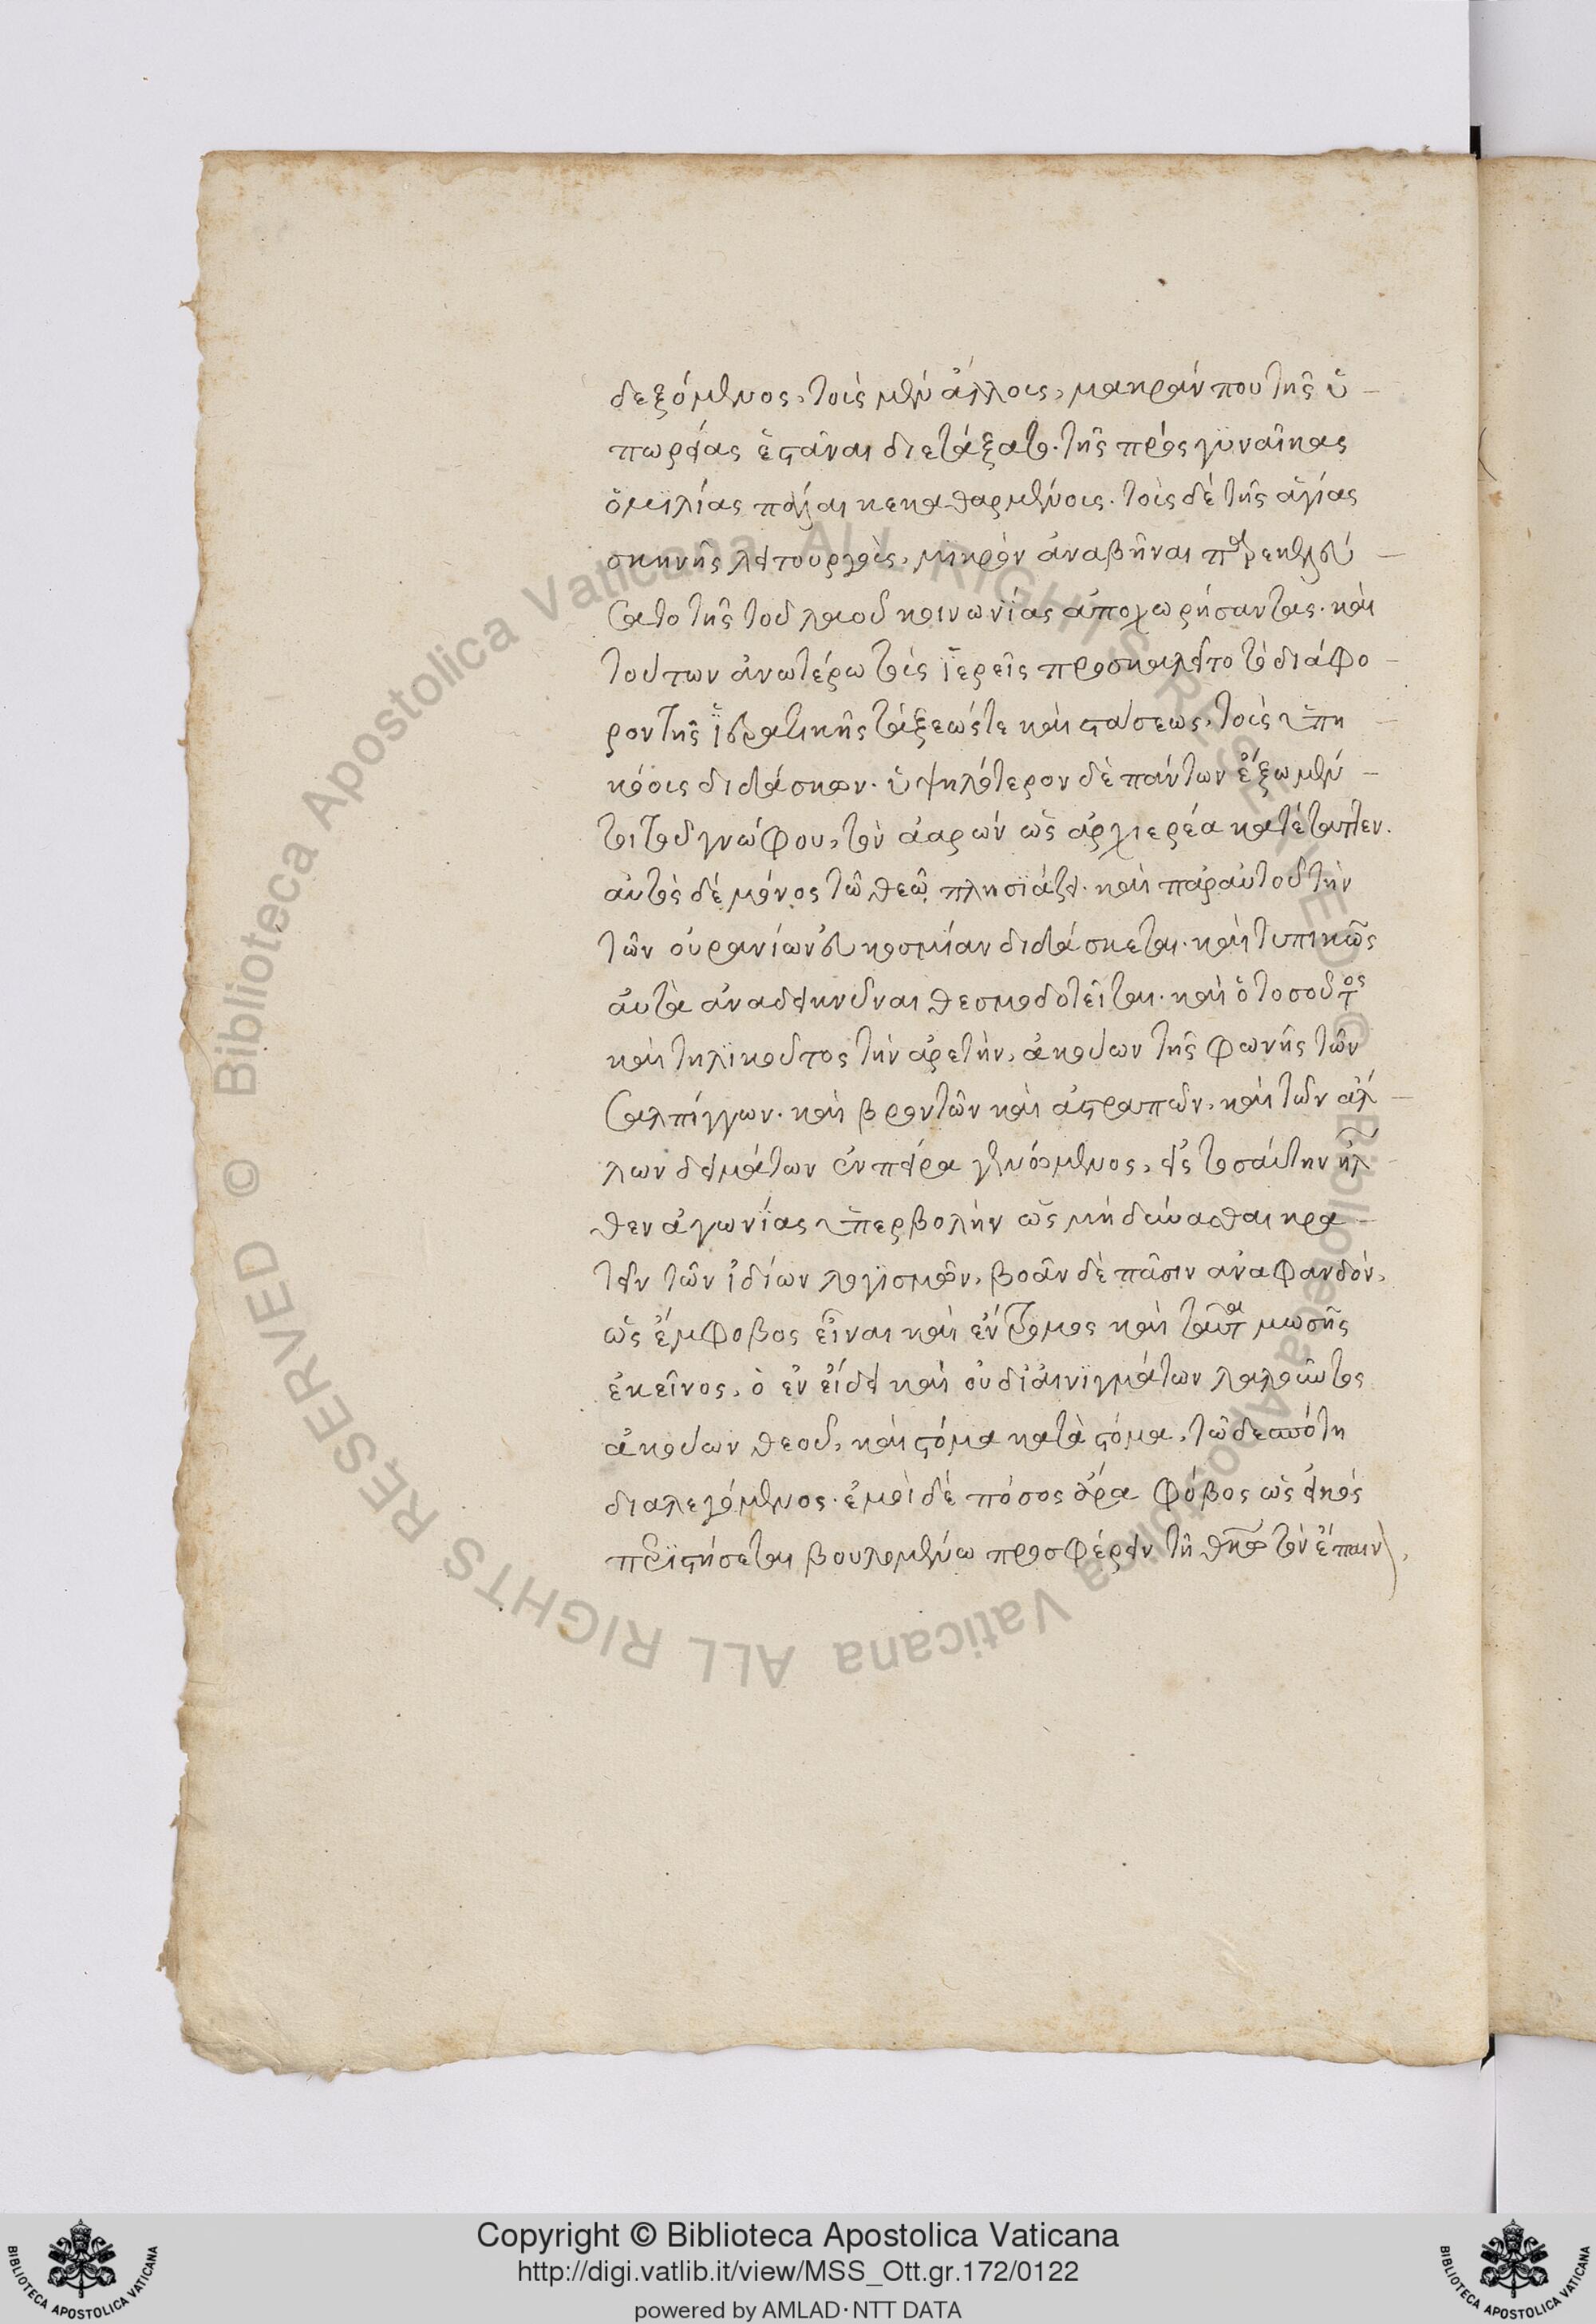 δεξόμενος, τοῖς μὲν ἄλλοις, μακράν που τῆς ὑ-
πωρείας ἑστάναι διετάξατο. τῆς πρὸς γυναῖκας
ὁμιλίας πάλαι κεκαθαρμένοις. τοῖς δὲ τῆς ἁγίας
σκηνῆς λειτουργοῖς, μικρὸν ἀναβῆναι παρεκελεύ-
σατο τῆς τοῦ λαοῦ κοινωνίας ἀποχωρήσαντας. καὶ
τούτων ἀνωτέρω τοὺς ἱερεῖς προσκαλεῖτο τὸ διάφο-
ρον τῆς ἱερατικῆς τάξεώς τε καὶ στάσεως, τοῖς ὑπη-
κόοις διδάσκων. ὑψηλότερον δὲ πάντων ἔξω μέν-
τοι τοῦ γνόφου, τὸν ἀαρὼν ὡς ἀρχιερέα κατέταττεν.
αὐτὸς δὲ μόνος τῷ θεῷ πλησιάζει. καὶ παρ' αὐτοῦ τὴν
τῶν οὐρανίων εὐκοσμίαν διδάσκεται. καὶ τυπικῶς
αὐτὰ ἀναδεικνύναι θεσμοδοτεῖται. καὶ ὁ τοσοῦτος
καὶ τηλικοῦτος τὴν ἀρετὴν, ἀκούων τῆς φωνῆς τῶν
σαλπίγγων. καὶ βροντῶν καὶ ἀστραπῶν, καὶ τῶν ἀλ-
λων δειμάτων ἐν πείρα γενόμενος, εἰς τοσαύτην ἦλ-
θεν ἀγωνίας ὑπερβολὴν ὡς μὴ δύνασθαι κρα-
τεῖν τῶν ἰδίων λογισμῶν, βοᾶν δὲ πᾶσιν ἀναφανδόν,
ὡς ἔμφοβος εἶναι καὶ ἔντρομος καὶ ταῦτα μωσῆς
ἐκεῖνος, ὁ ἐν εἴδει καὶ οὐ δι' αἰνιγμάτων λαλοῦντος
ἀκούων θεοῦ, καὶ στόμα κατὰ στόμα, τῷ δεσπότη
διαλεγόμενος. ἐμοὶ δὲ πόσος ἄρα φόβος ὡς εἰκὸς
περιστήσεται βουλομένω προσφέρειν τῆ θεοτόκω τὸν ἔπαινον,
Copyright © Biblioteca Apostolica Vaticana
http://digi.vatlib.it/view/MSS_Ott.gr.172/0122
powered by AMLAD·NTT DATA